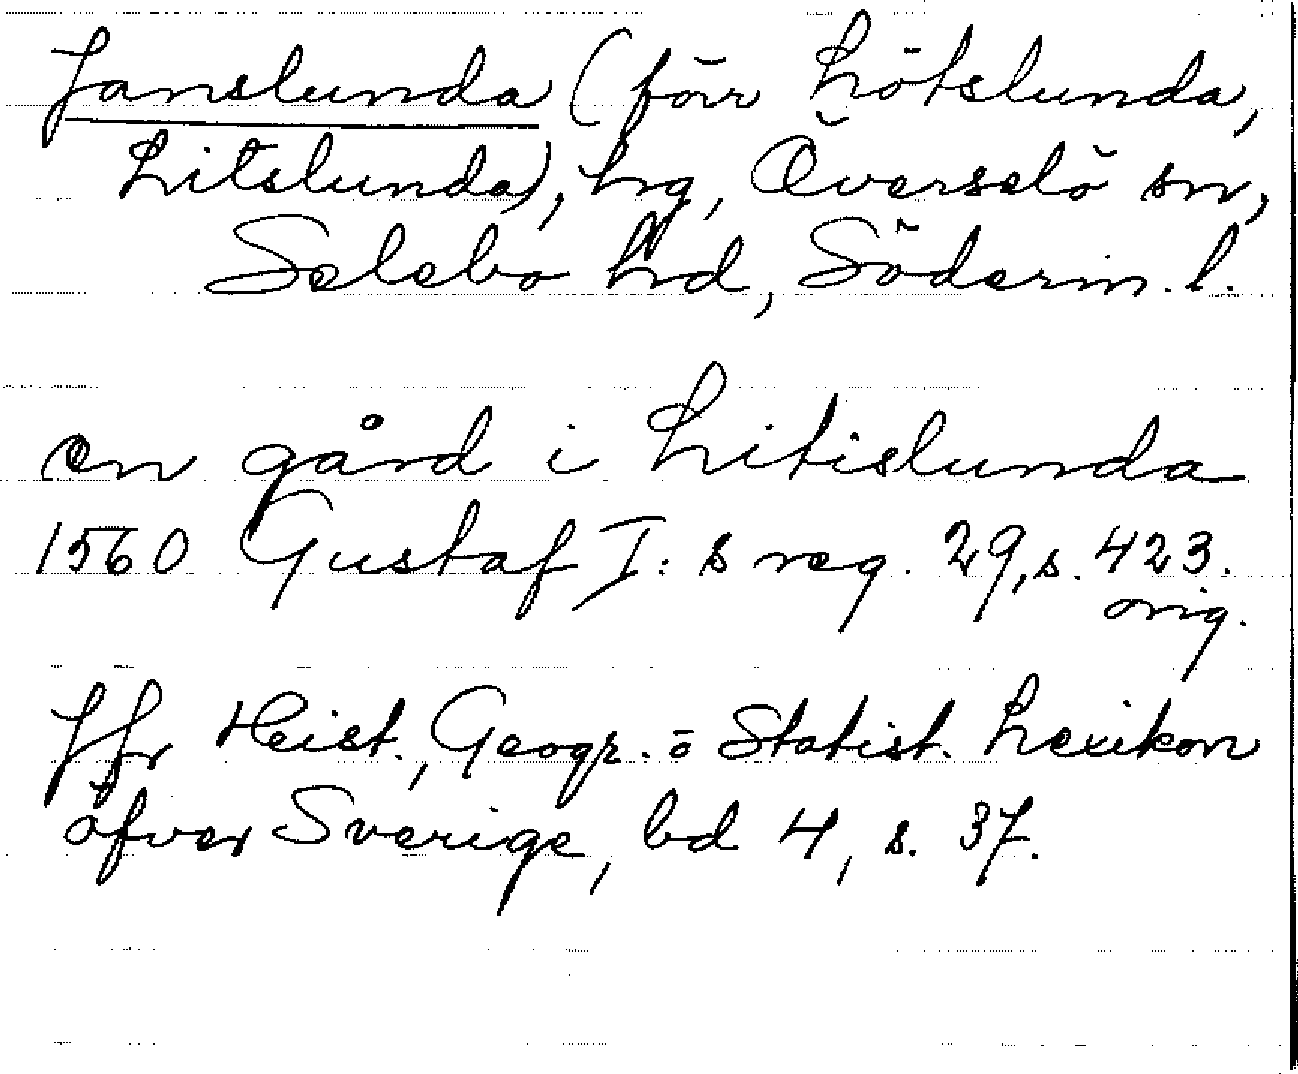 Janslunda (förr Lötslunda,
Litslunda), hg, Överselö sn,
Selebo hd, Söderm. l.
en gård i Litislunda
1560 Gustaf I: s reg. 29, s. 423.
orig.
Jfr Hist., Geogr. o Statist. Lexikon
öfver Sverige, bd 4, s. 37.